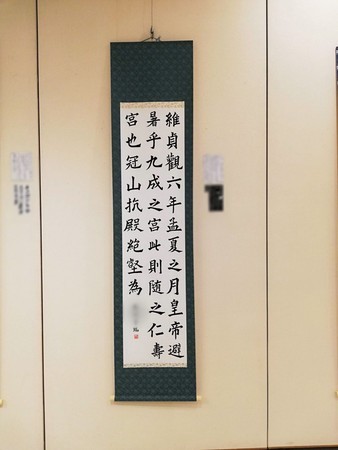 維貞觀六年孟夏之月皇帝避
暑乎九成之宮此則随之仁壽
宮也冠山抗殿絶壑為
臨